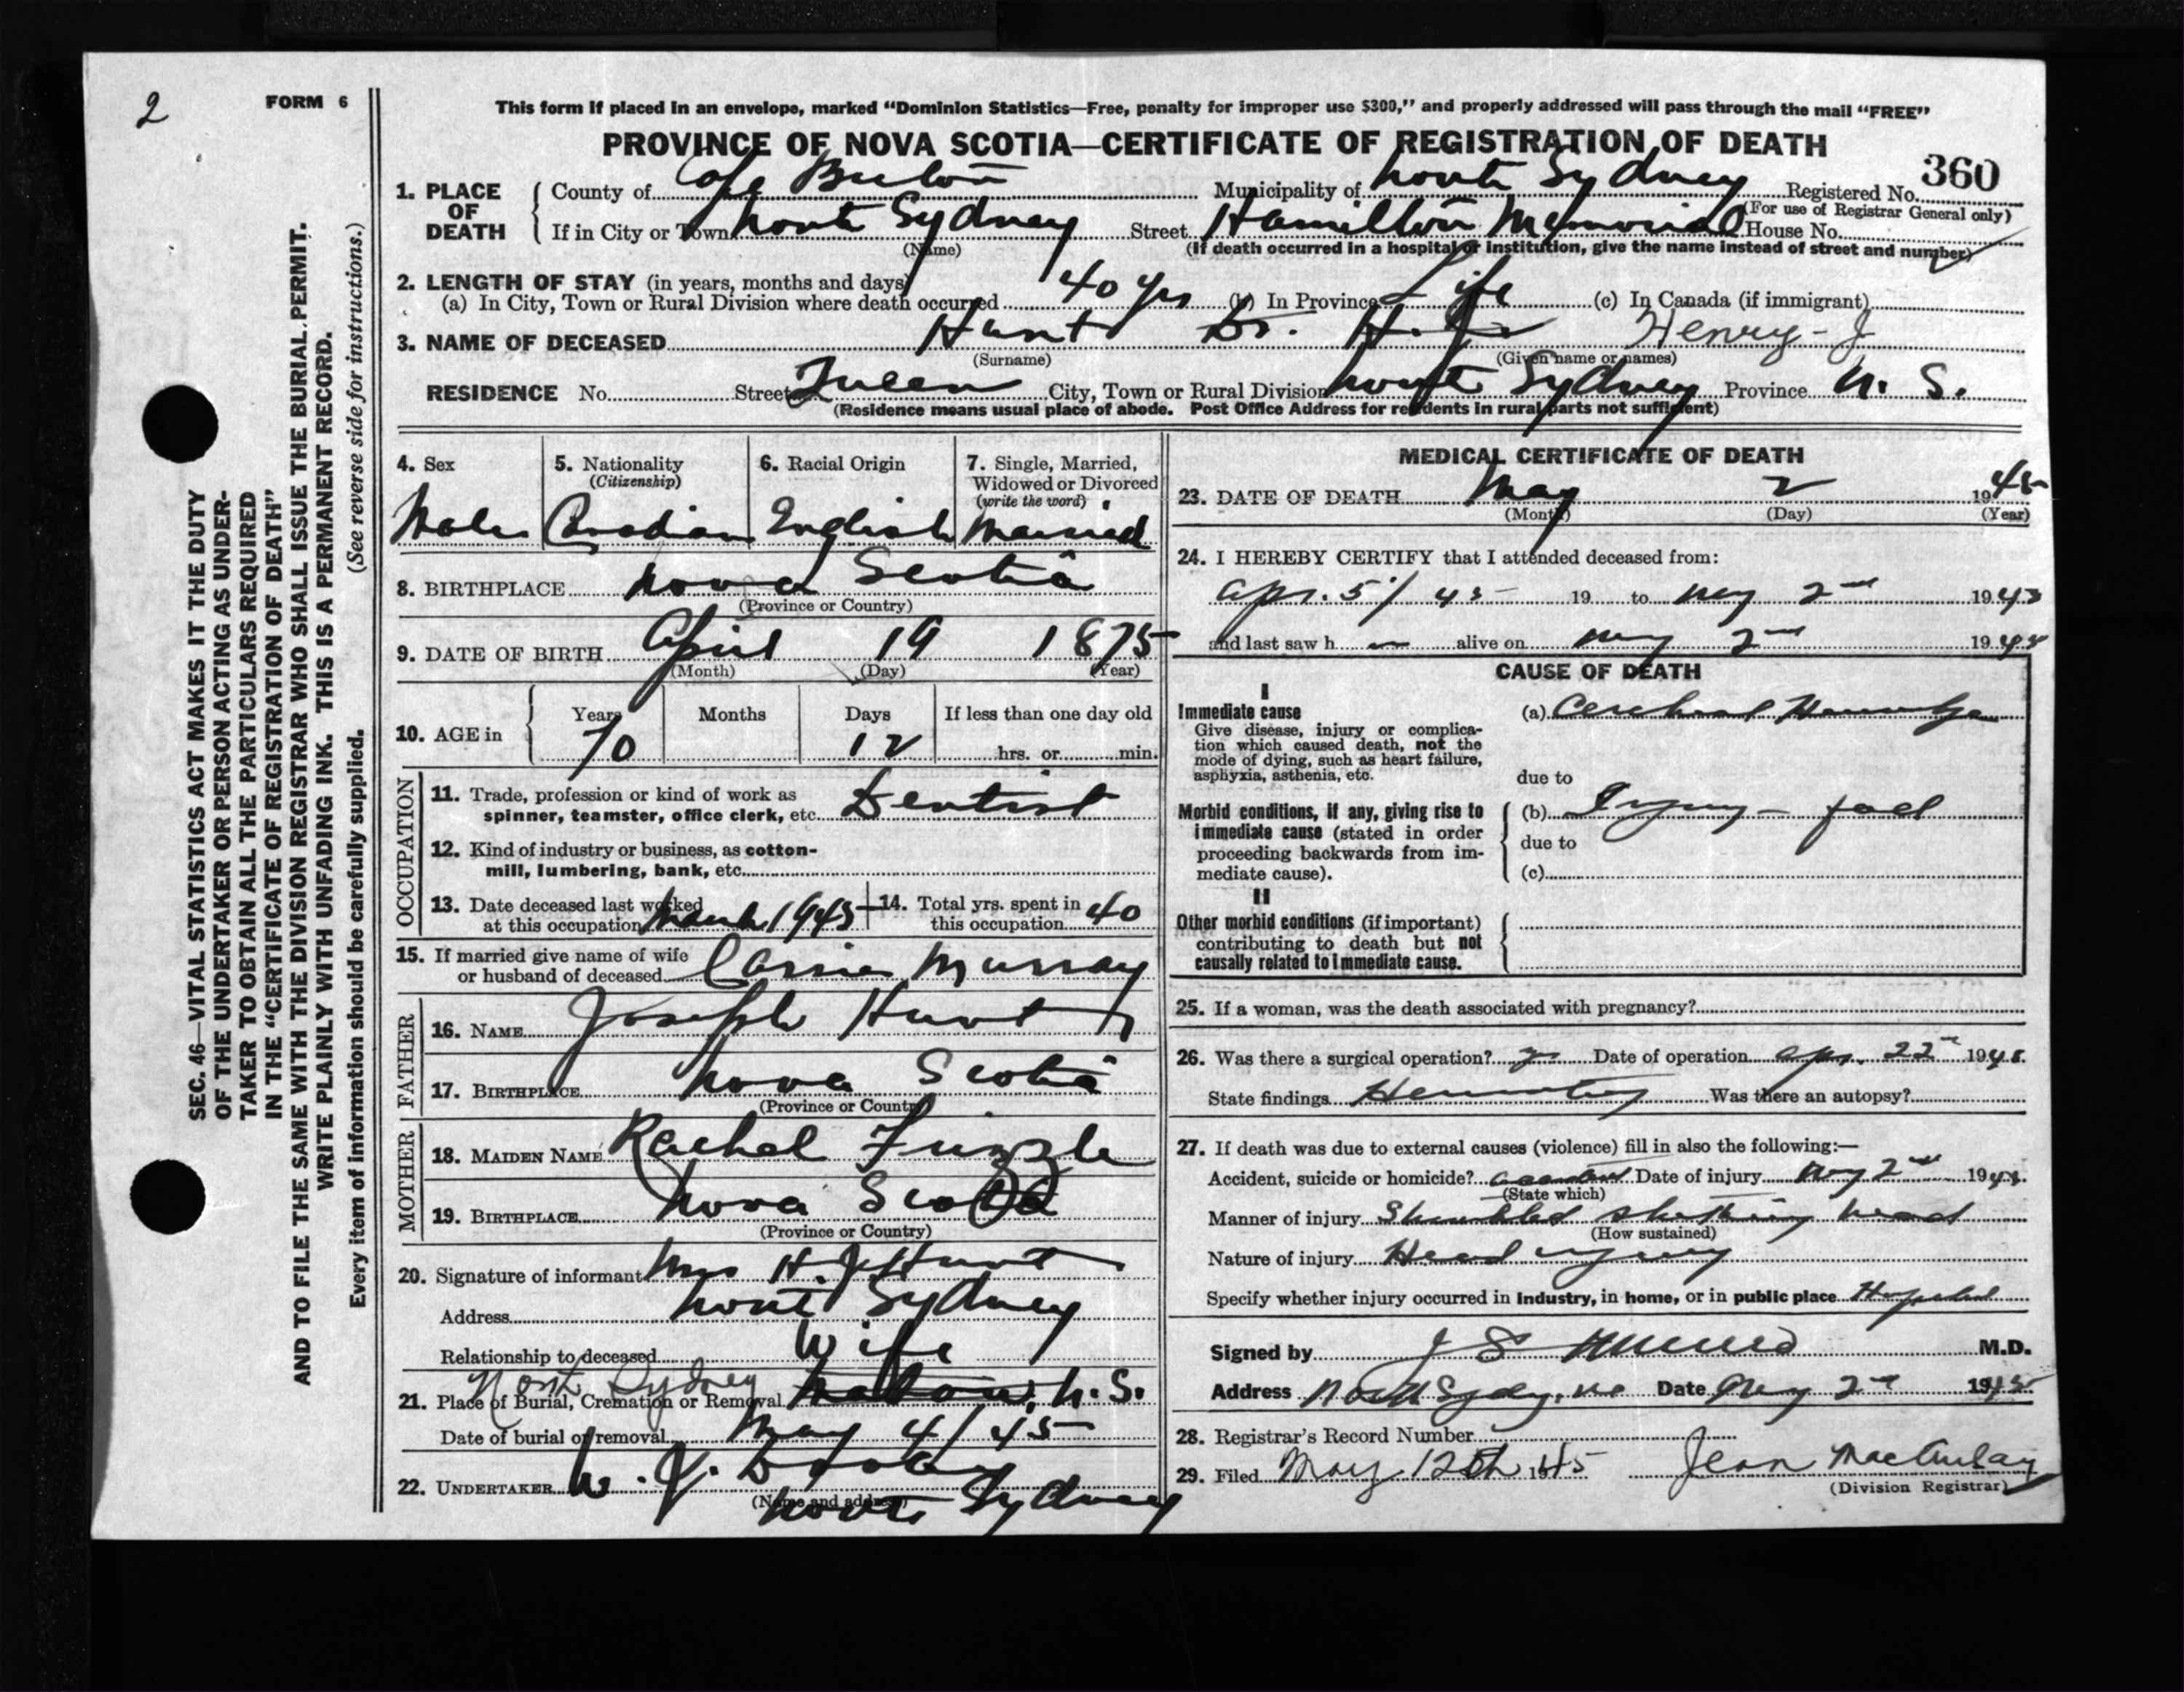 2
FORM 6
This form if placed in an envelope, marked “Dominion Statistics—Free, penalty for improper use $300,” and properly addressed will pass through the mail “FREE”
PROVINCE OF NOVA SCOTIA—CERTIFICATE OF REGISTRATION OF DEATH
SEC. 46—VITAL STATISTICS ACT MAKES IT THE DUTY
OF THE UNDERTAKER OR PERSON ACTING AS UNDER-
TAKER TO OBTAIN ALL THE PARTICULARS REQUIRED
IN THE “CERTIFICATE OF REGISTRATION OF DEATH”
AND TO FILE THE SAME WITH THE DIVISION REGISTRAR WHO SHALL ISSUE THE BURIAL PERMIT.
WRITE PLAINLY WITH UNFADING INK. THIS IS A PERMANENT RECORD.
Every item of information should be carefully supplied. (See reverse side for instructions.)
1. PLACE OF DEATH
County of Cape Breton Municipality of North Sydney Registered No. 360
(For use of Registrar General only)
If in City or Town North Sydney Street Hamilton Memorial House No.
(Name) (If death occurred in a hospital or institution, give the name instead of street and number)
2. LENGTH OF STAY (in years, months and days)
(a) In City, Town or Rural Division where death occurred 40 yrs (b) In Province Life (c) In Canada (if immigrant)
3. NAME OF DECEASED Hunt Dr. H. J. Henry-J
(Surname) (Given name or names)
RESIDENCE No. Street Queen City, Town or Rural Division North Sydney Province N. S.
(Residence means usual place of abode. Post Office Address for residents in rural parts not sufficient)
4. Sex 5. Nationality 6. Racial Origin 7. Single, Married,
(Citizenship) Widowed or Divorced
(write the word)
Male Canadian English Married
8. BIRTHPLACE Nova Scotia
(Province or Country)
9. DATE OF BIRTH April 19 1875
(Month) (Day) (Year)
10. AGE in Years Months Days If less than one day old
70 12 hrs. or min.
OCCUPATION
11. Trade, profession or kind of work as
spinner, teamster, office clerk, etc. Dentist
12. Kind of industry or business, as cotton-
mill, lumbering, bank, etc.
13. Date deceased last worked 14. Total yrs. spent in
at this occupation March 1945 this occupation 40
15. If married give name of wife
or husband of deceased Cassie Murray
FATHER
16. NAME Joseph Hunt
17. BIRTHPLACE Nova Scotia
(Province or Country)
MOTHER
18. MAIDEN NAME Rachel
19. BIRTHPLACE Nova Scotia
(Province or Country)
20. Signature of informant Mrs H. J Hunt
Address North Sydney
Relationship to deceased Wife
21. Place of Burial, Cremation or Removal North Sydney N. S.
Date of burial or removal May 4/45
22. UNDERTAKER W. J. Dooley
(Name and address)
North Sydney
MEDICAL CERTIFICATE OF DEATH
23. DATE OF DEATH May 2 1945
(Month) (Day) (Year)
24. I HEREBY CERTIFY that I attended deceased from:
Apr. 5/45 19 to May 2nd 1945
and last saw h alive on May 2nd 1945
CAUSE OF DEATH
I
Immediate cause (a) Cerebral Hemorrhage
Give disease, injury or complica-
tion which caused death, not the
mode of dying, such as heart failure,
asphyxia, asthenia, etc.
due to
Morbid conditions, if any, giving rise to (b) Injury -
immediate cause (stated in order due to
proceeding backwards from im-
mediate cause). (c)
II
Other morbid conditions (if important)
contributing to death but not
causally related to immediate cause.
25. If a woman, was the death associated with pregnancy?
26. Was there a surgical operation? yes Date of operation Apr. 22nd 1945
State findings Was there an autopsy?
27. If death was due to external causes (violence) fill in also the following:—
Accident, suicide or homicide? accident Date of injury May 2nd 1945
(State which)
Manner of injury Stumbled striking head
(How sustained)
Nature of injury Head injury
Specify whether injury occurred in industry, in home, or in public place Hospital
Signed by J S Munro M.D.
Address North Sydney, NS Date May 2nd 1945
28. Registrar's Record Number
29. Filed May 12th 1945 Jean MacAulay
(Division Registrar)